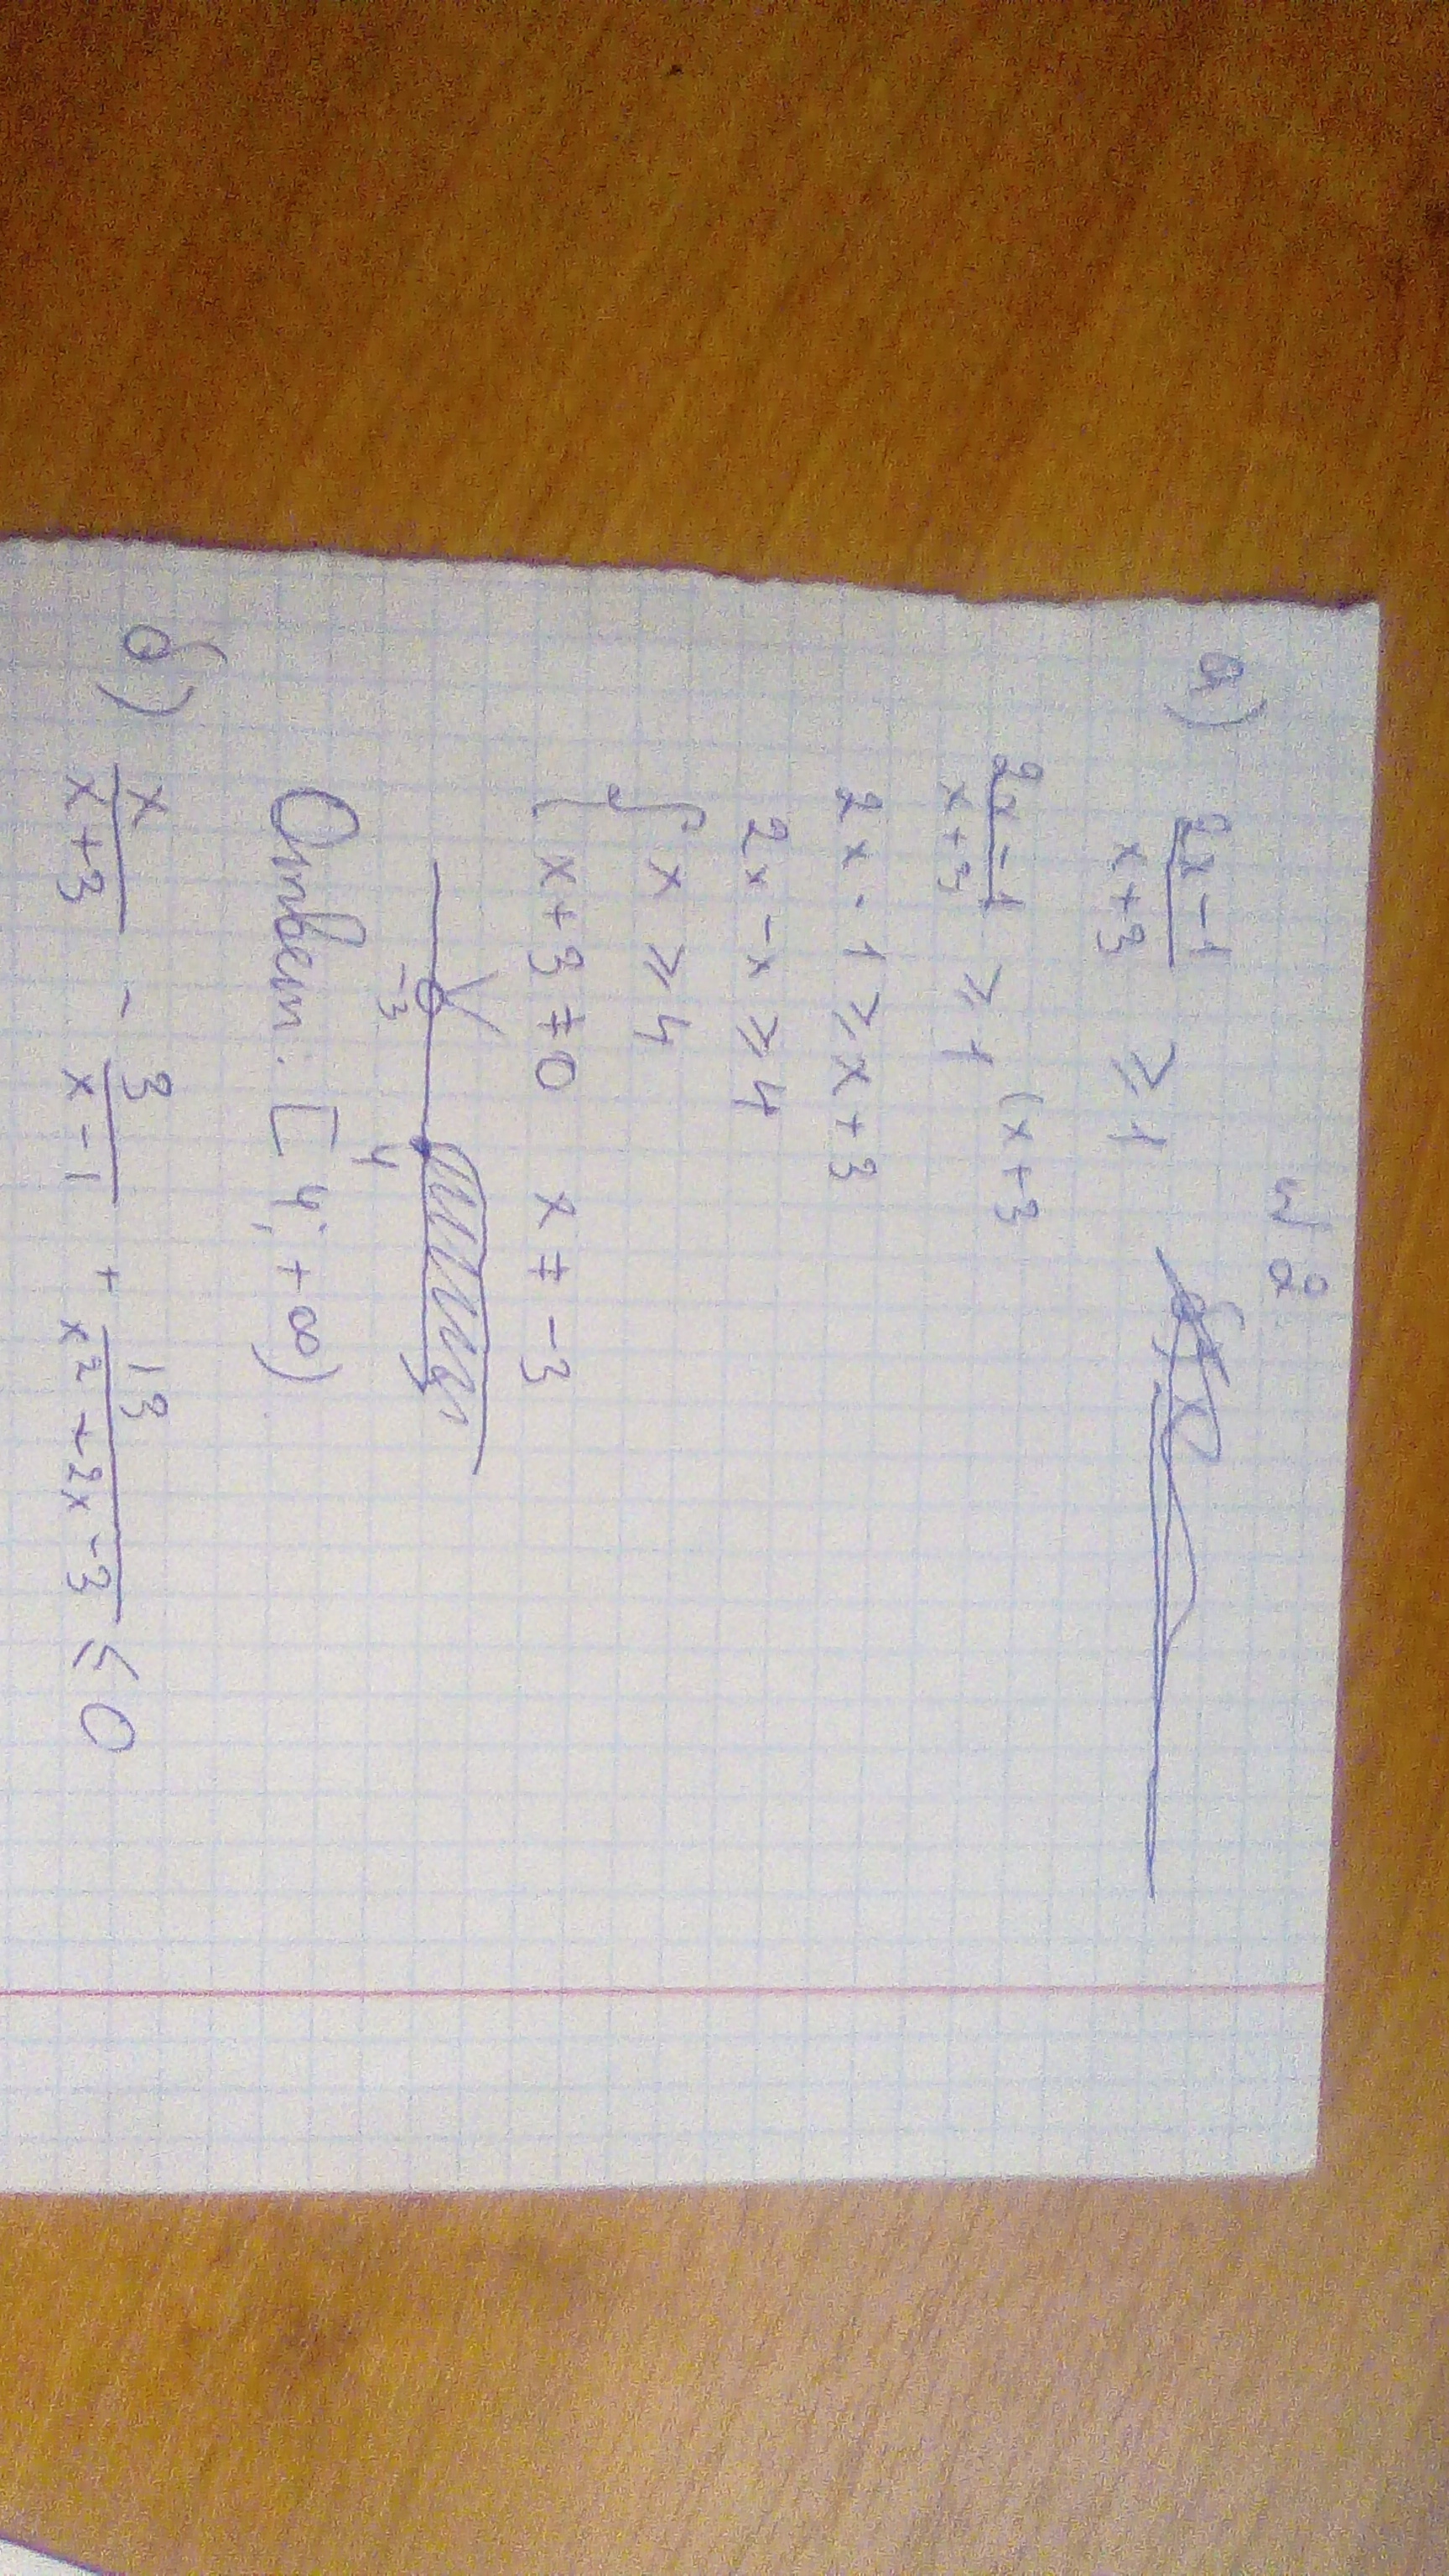 № 2
а) (2x-1)/(x+3) ≥ 1
(2x-1)/(x+3) ≥ 1 (x+3
2x-1 ≥ x+3
2x-x ≥ 4
{ x ≥ 4
{ x+3 ≠ 0 x ≠ -3
-3 4
Ответ: [4; +∞)
б) x/(x+3) - 3/(x-1) + 13/(x²+2x-3) ≤ 0